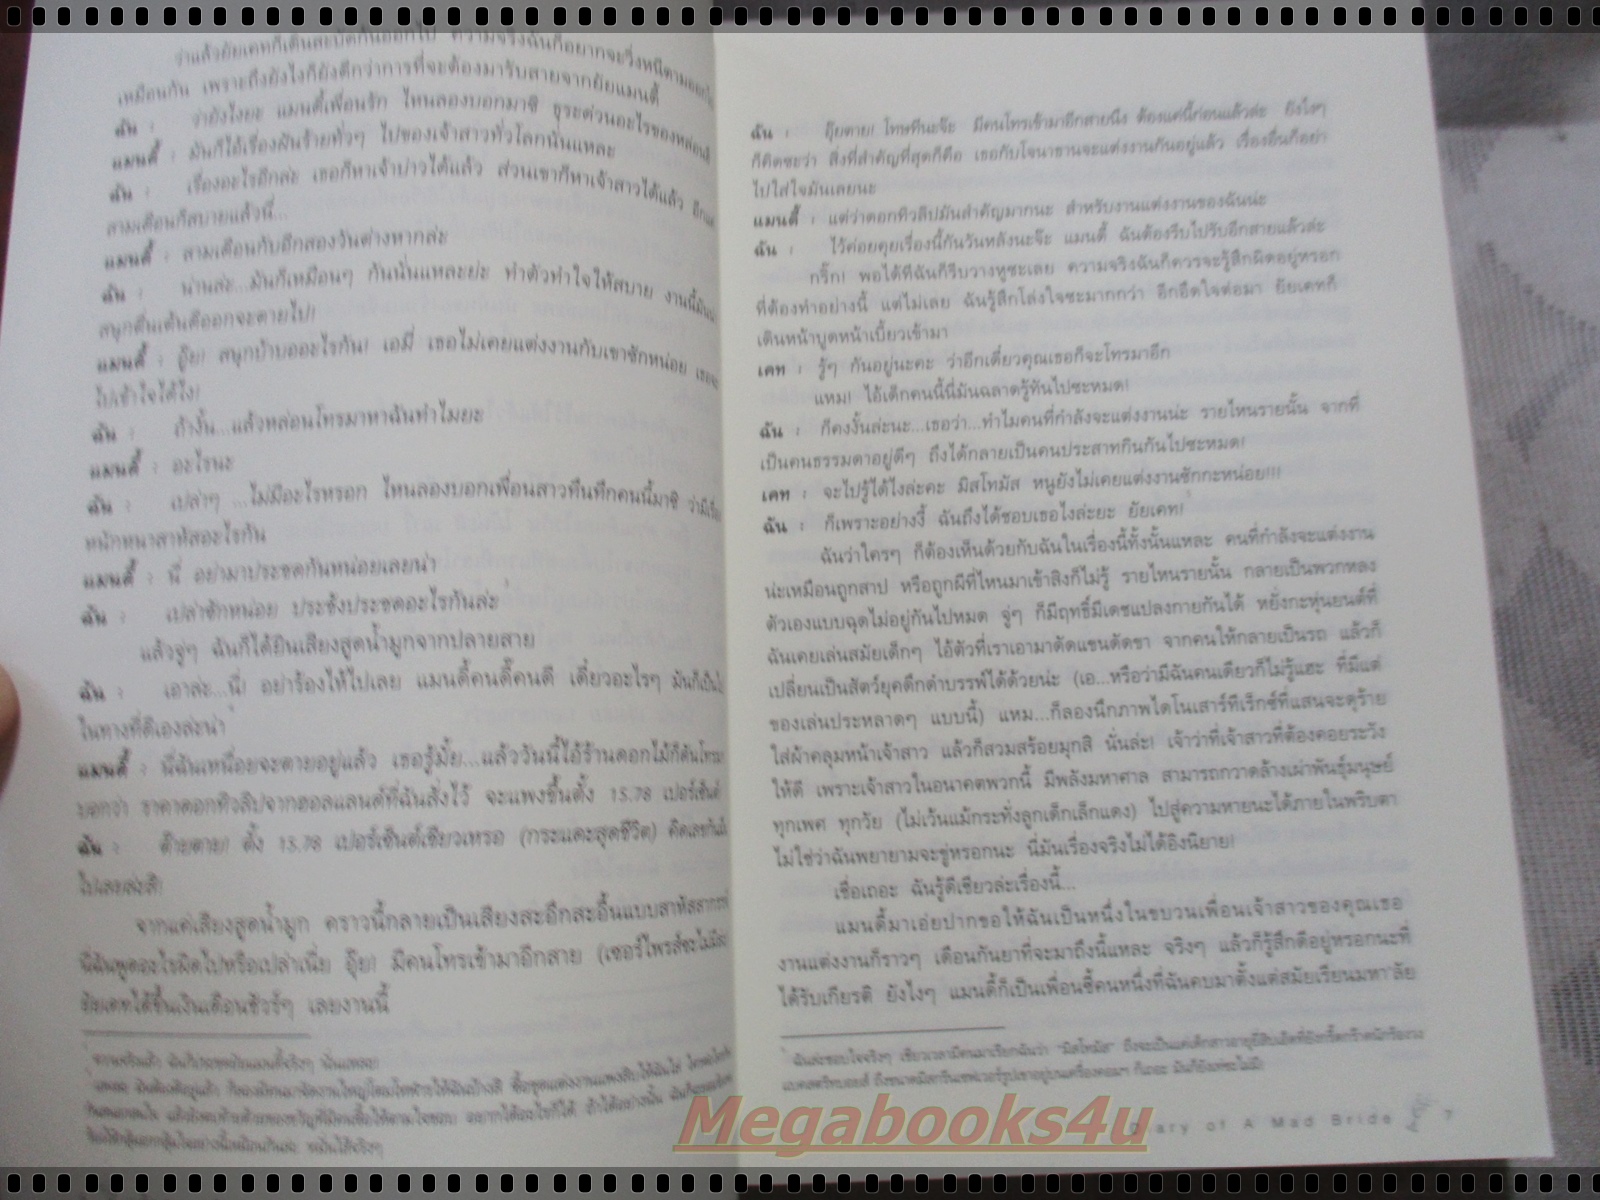 ว่าแล้วยัยเคทก็เดินสะบัดก้นออกไป ความจริงฉันก็อยากจะวิ่งหนีตามออกไป
เหมือนกัน เพราะถึงยังไงก็ยังดีกว่าการที่จะต้องมารับสายจากยัยแมนดี้
ฉัน : ว่ายังไงยะ แมนดี้เพื่อนรัก ไหนลองบอกมาซิ ธุระด่วนอะไรของหล่อนล่ะ
แมนดี้ : มันก็ไอ้เรื่องฝันร้ายทั่วๆ ไปของเจ้าสาวทั่วโลกนั่นแหละ
ฉัน : เรื่องอะไรอีกล่ะ เธอก็หาเจ้าบ่าวได้แล้ว ส่วนเขาก็หาเจ้าสาวได้แล้ว อีกแค่
สามเดือนก็สบายแล้วนี่...
แมนดี้ : สามเดือนกับอีกสองวันต่างหากล่ะ
ฉัน : น่านล่ะ...มันก็เหมือนๆ กันนั่นแหละย่ะ ทำตัวทำใจให้สบาย งานนี้มัน
สนุกตื่นเต้นดีออกจะตายไป!
แมนดี้ : อุ๊ย! สนุกบ้าบออะไรกัน! เอมี่ เธอไม่เคยแต่งงานกับเขาซักหน่อย เธอจะ
ไปเข้าใจได้ไง!
ฉัน : ถ้างั้น...แล้วหล่อนโทรมาหาฉันทำไมยะ
แมนดี้ : อะไรนะ
ฉัน : เปล่าๆ ...ไม่มีอะไรหรอก ไหนลองบอกเพื่อนสาวทึนทึกคนนี้มาซิ ว่ามีเรื่อง
หนักหนาสาหัสอะไรกัน
แมนดี้ : นี่ อย่ามาประชดกันหน่อยเลยน่า
ฉัน : เปล่าซักหน่อย ประชงประชดอะไรกันล่ะ
แล้วจู่ๆ ฉันก็ได้ยินเสียงสูดน้ำมูกจากปลายสาย
ฉัน : เอาล่ะ...นี่! อย่าร้องไห้ไปเลย แมนดี้คนดี๊คนดี เดี๋ยวอะไรๆ มันก็เป็นไป
ในทางที่ดีเองล่ะน่า
แมนดี้ : นี่ฉันเหนื่อยจะตายอยู่แล้ว เธอรู้มั้ย...แล้ววันนี้ไอ้ร้านดอกไม้ก็ดันโทรมา
บอกว่า ราคาดอกทิวลิปจากฮอลแลนด์ที่ฉันสั่งไว้ จะแพงขึ้นตั้ง 15.78 เปอร์เซ็นต์
ฉัน : ต๊ายตาย! ตั้ง 15.78 เปอร์เซ็นต์เชียวเหรอ (กระแดะสุดชีวิต) คิดเลขกันเข้า
ไปเลยล่ะสิ!
จากแค่เสียงสูดน้ำมูก คราวนี้กลายเป็นเสียงสะอึกสะอื้นแบบสาหัสสากรรจ์
นี่ฉันพูดอะไรผิดไปหรือเปล่าเนี่ย อุ๊ย! มีคนโทรเข้ามาอีกสาย (เซอร์ไพรส์ซะไม่มีล่ะ
ยัยเคทได้ขึ้นเงินเดือนชัวร์ๆ เลยงานนี้
ฉัน : อุ๊ยตาย! โทษทีนะจ๊ะ มีคนโทรเข้ามาอีกสายนึง ต้องแค่นี้ก่อนแล้วล่ะ ยังไงๆ
ก็คิดซะว่า สิ่งที่สำคัญที่สุดก็คือ เธอกับโจนาธานจะแต่งงานกันอยู่แล้ว เรื่องอื่นก็อย่า
ไปใส่ใจมันเลยนะ
แมนดี้ : แต่ว่าดอกทิวลิปมันสำคัญมากนะ สำหรับงานแต่งงานของฉันน่ะ
ฉัน : ไว้ค่อยคุยเรื่องนี้กันวันหลังนะจ๊ะ แมนดี้ ฉันต้องรีบไปรับอีกสายแล้วล่ะ
กริ๊ก! พอได้ทีฉันก็รีบวางหูซะเลย ความจริงฉันก็ควรจะรู้สึกผิดอยู่หรอก
ที่ต้องทำอย่างนี้ แต่ไม่เลย ฉันรู้สึกโล่งใจซะมากกว่า อีกอึดใจต่อมา ยัยเคทก็
เดินหน้าบูดหน้าเบี้ยวเข้ามา
เคท : รู้ๆ กันอยู่นะคะ ว่าอีกเดี๋ยวคุณเธอก็จะโทรมาอีก
แหม! ไอ้เด็กคนนี้นี่มันฉลาดรู้ทันไปซะหมด!
ฉัน : ก็คงงั้นล่ะนะ...เธอว่า...ทำไมคนที่กำลังจะแต่งงานน่ะ รายไหนรายนั้น จากที่
เป็นคนธรรมดาอยู่ดีๆ ถึงได้กลายเป็นคนประสาทกินกันไปซะหมด!
เคท : จะไปรู้ได้ไงล่ะคะ มิสโทมัส หนูยังไม่เคยแต่งงานซักกะหน่อย!!!
ฉัน : ก็เพราะอย่างงี้ ฉันถึงได้ชอบเธอไงล่ะยะ ยัยเคท!
ฉันว่าใครๆ ก็ต้องเห็นด้วยกับฉันในเรื่องนี้ทั้งนั้นแหละ คนที่กำลังจะแต่งงาน
น่ะเหมือนถูกสาป หรือถูกผีที่ไหนมาเข้าสิงก็ไม่รู้ รายไหนรายนั้น กลายเป็นพวกหลง
ตัวเองแบบฉุดไม่อยู่กันไปหมด จู่ๆ ก็มีฤทธิ์มีเดชแปลงกายกันได้ หยั่งกะหุ่นยนต์ที่
ฉันเคยเล่นสมัยเด็กๆ ไอ้ตัวที่เราเอามาดัดแขนดัดขา จากคนให้กลายเป็นรถ แล้วก็
เปลี่ยนเป็นสัตว์ยุคดึกดำบรรพ์ได้ด้วยน่ะ (เอ...หรือว่ามีฉันคนเดียวก็ไม่รู้แฮะ ที่มีแต่
ของเล่นประหลาดๆ แบบนี้) แหม...ก็ลองนึกภาพไดโนเสาร์ทีเร็กซ์ที่แสนจะดุร้าย
ใส่ผ้าคลุมหน้าเจ้าสาว แล้วก็สวมสร้อยมุกสิ นั่นล่ะ! เจ้าว่าที่เจ้าสาวที่ต้องคอยระวัง
ให้ดี เพราะเจ้าสาวในอนาคตพวกนี้ มีพลังมหาศาล สามารถกวาดล้างเผ่าพันธุ์มนุษย์
ทุกเพศ ทุกวัย (ไม่เว้นแม้กระทั่งลูกเด็กเล็กแดง) ไปสู่ความหายนะได้ภายในพริบตา
ไม่ใช่ว่าฉันพยายามจะขู่หรอกนะ นี่มันเรื่องจริงไม่ได้อิงนิยาย!
เชื่อเถอะ ฉันรู้ดีเชียวล่ะเรื่องนี้...
แมนดี้มาเอ่ยปากขอให้ฉันเป็นหนึ่งในขบวนเพื่อนเจ้าสาวของคุณเธอ
งานแต่งงานก็ราวๆ เดือนกันยาที่จะมาถึงนี้แหละ จริงๆ แล้วก็รู้สึกดีอยู่หรอกนะที่
ได้รับเกียรติ ยังไงๆ แมนดี้ก็เป็นเพื่อนซี้คนหนึ่งที่ฉันคบมาตั้งแต่สมัยเรียนมหา'ลัย
ฉันล่ะชอบใจจริงๆ เชียวเวลามีคนมาเรียกฉันว่า "มิสโทมัส" ถึงจะเป็นแค่เด็กสาวอายุยี่สิบเอ็ดที่ยังกรี๊ดกร๊าดนักร้องวง
แบคสตรีทบอยส์
Diary of A Mad Bride 7
Megabooks4u